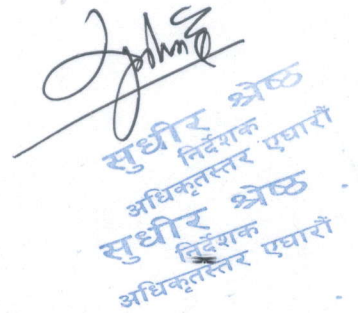 सुधीर श्रेष्ठ
निर्देशक
अधिकृतस्तर एघारौं
सुधीर श्रेष्ठ
निर्देशक
अधिकृतस्तर एघारौं